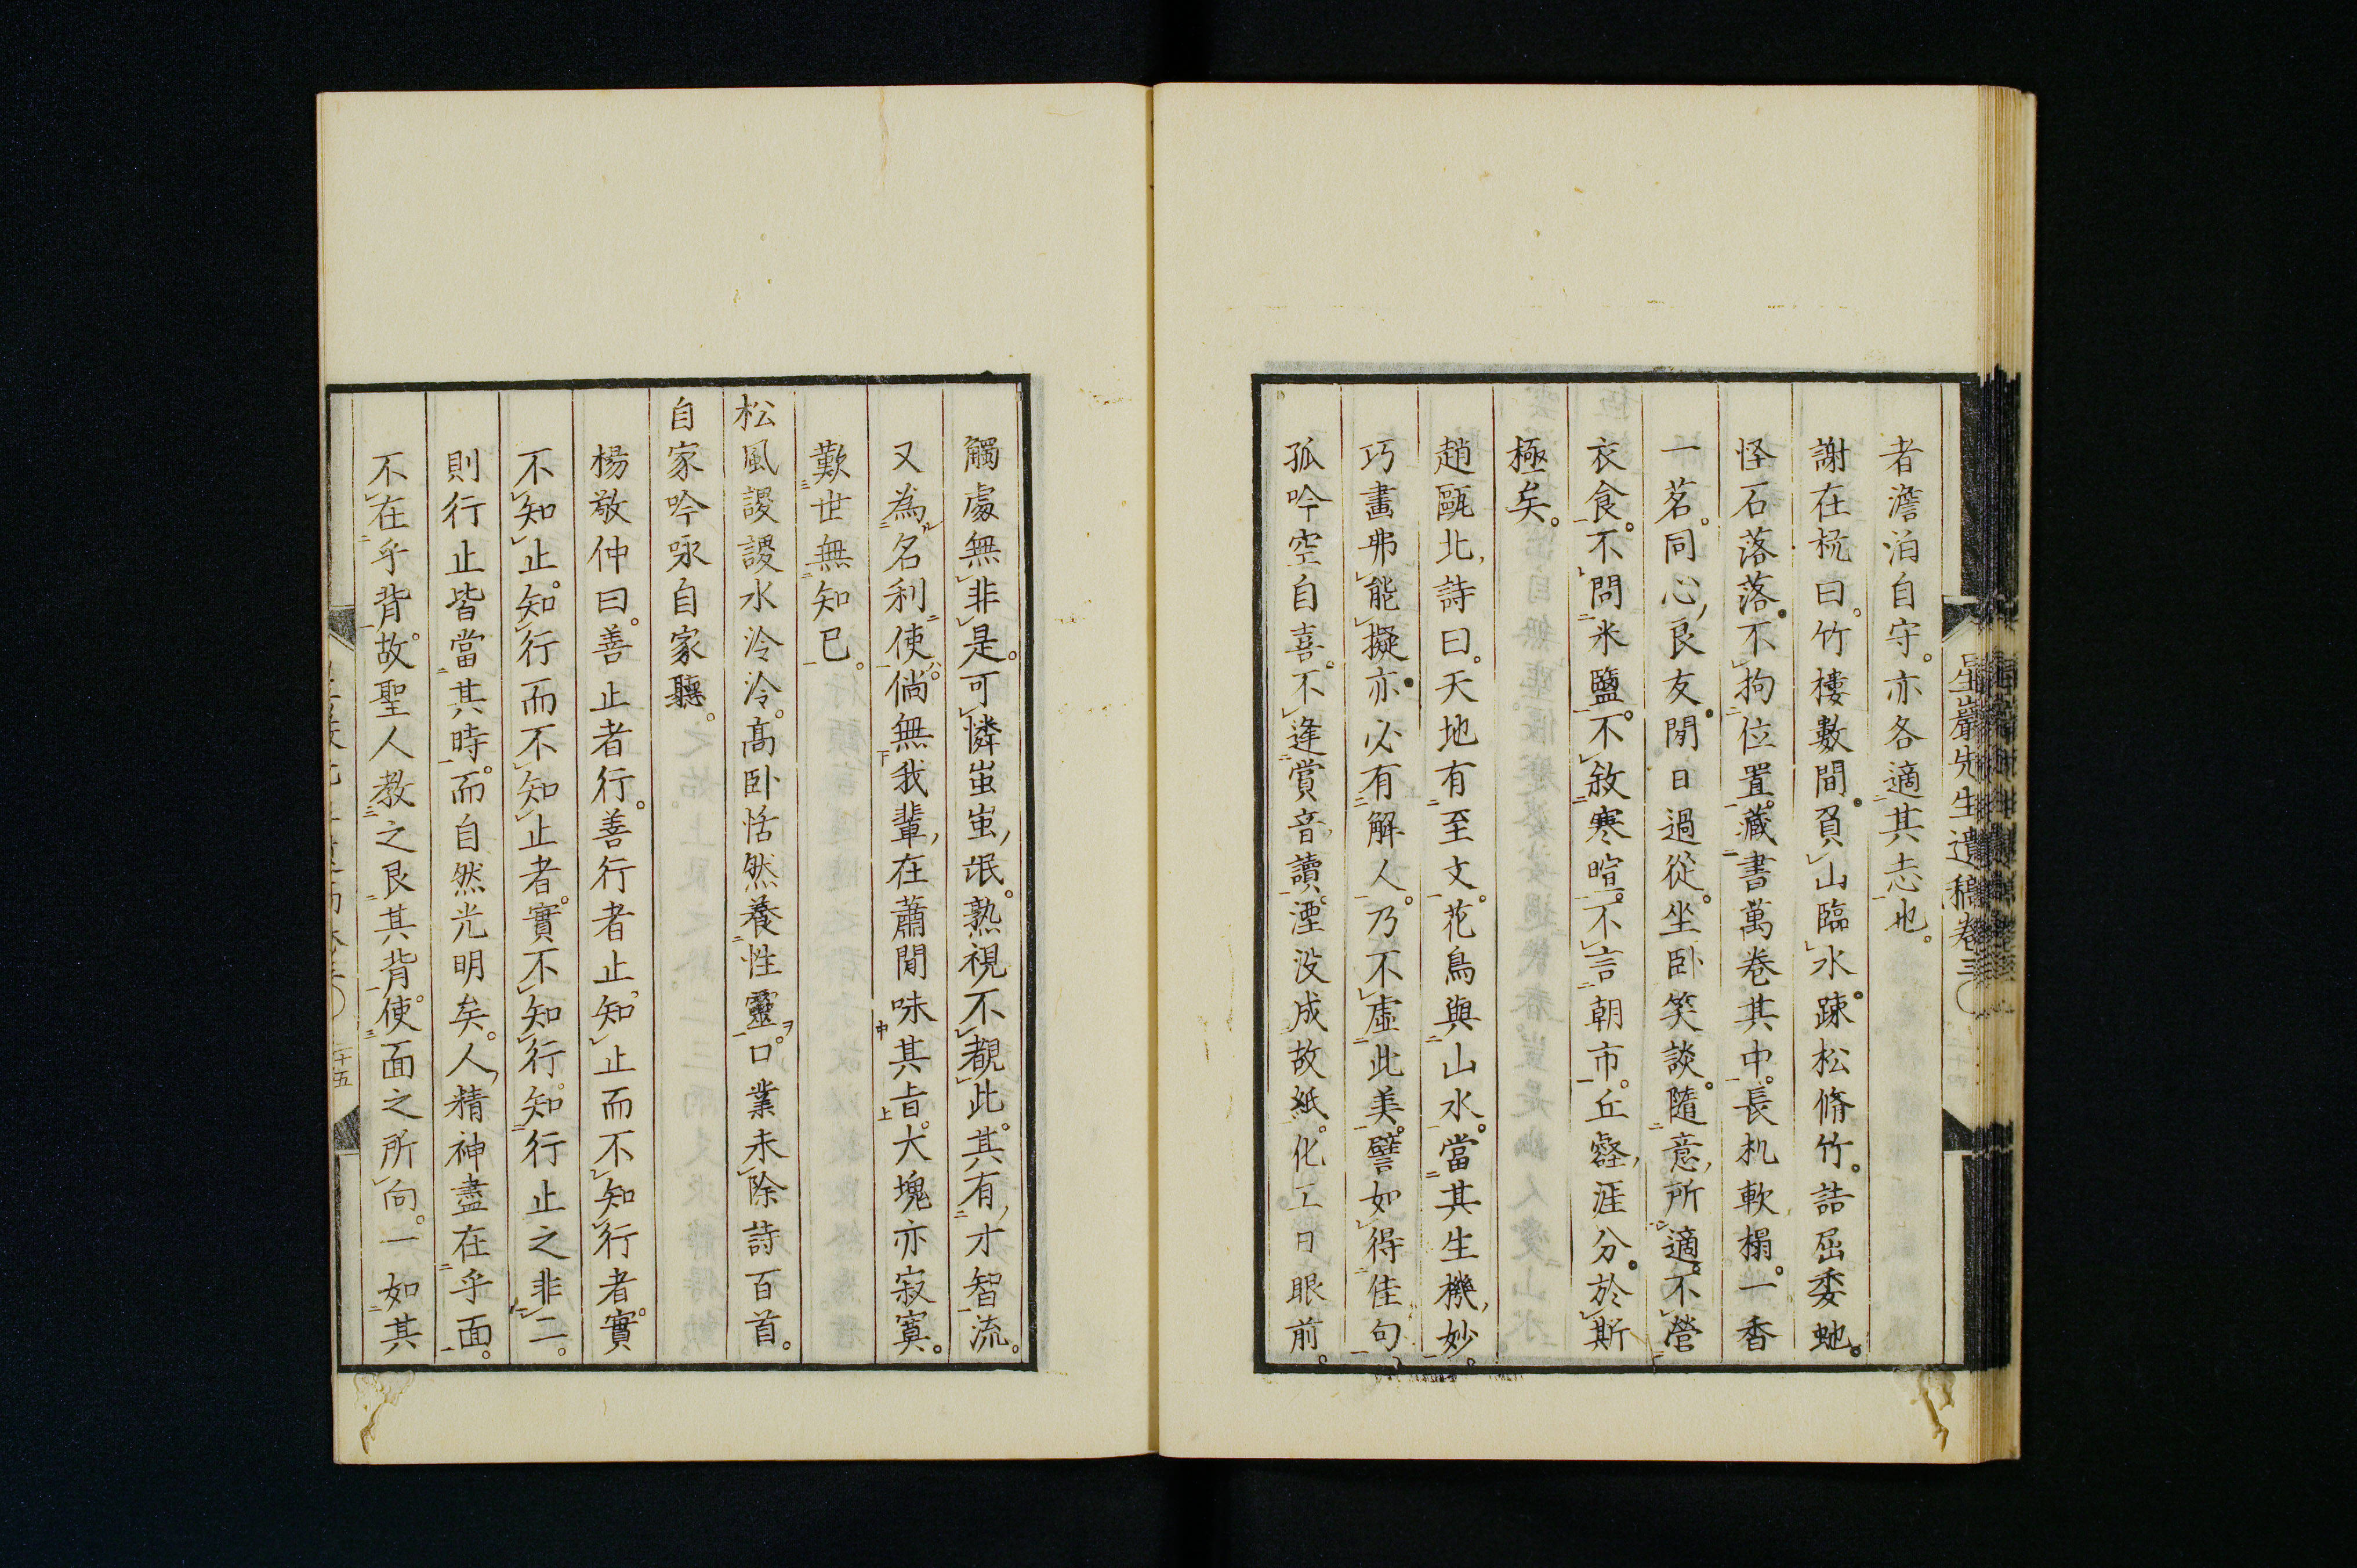 星巖先生遺稿卷三
者澹泊自守。亦各適其志也。
謝在杭曰。竹樓數間。負山臨水。踈松脩竹。詰屈委虵。
怪石落落。不拘位置。藏書萬卷其中。長机軟榻。一香
一茗。同心良友。閒日過從。坐卧笑談。隨意所適。不營
衣食。不問米鹽。不敘寒暄。不言朝市。丘壑涯分。於斯
極矣。
趙甌北詩曰。天地有至文。花鳥與山水。當其生機妙。
巧畫弗能擬。亦必有解人。乃不虛此美。譬如得佳句。
孤吟空自喜。不逢賞音讀。湮没成故紙。化工日眼前。
觸處無非是。可憐蚩蚩氓。熟視不覩此。其有才智流。
又為名利使。倘無我輩在。蕭閒味其旨。大塊亦寂寞。
歎世無知已。
松風謖謖水泠泠。高卧恬然養性靈。口業未除詩百首。
自家吟咏自家聽。
楊敬仲曰。善止者行。善行者止。知止而不知行者。實
不知止。知行而不知止者。實不知行。知行止之非二。
則行止皆當其時。而自然光明矣。人精神盡在乎面。
不在乎背。故聖人教之艮其背。使面之所向。一如其
二十五